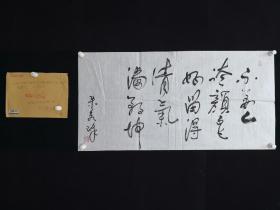 不要人
誇顏色
好留得
清氣
滿乾坤